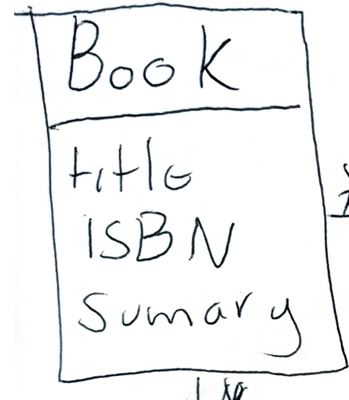 Book
title
ISBN
Sumary